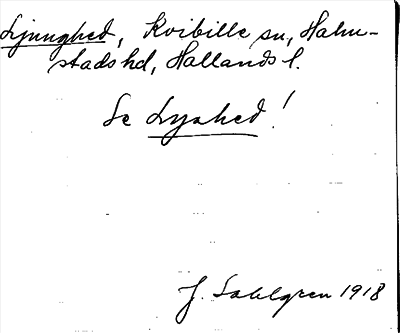 Ljunghed, Kvibille sn, Halm-
stads hd, Hallands l.
Se Lyahed!
J. Sahlgren 1918